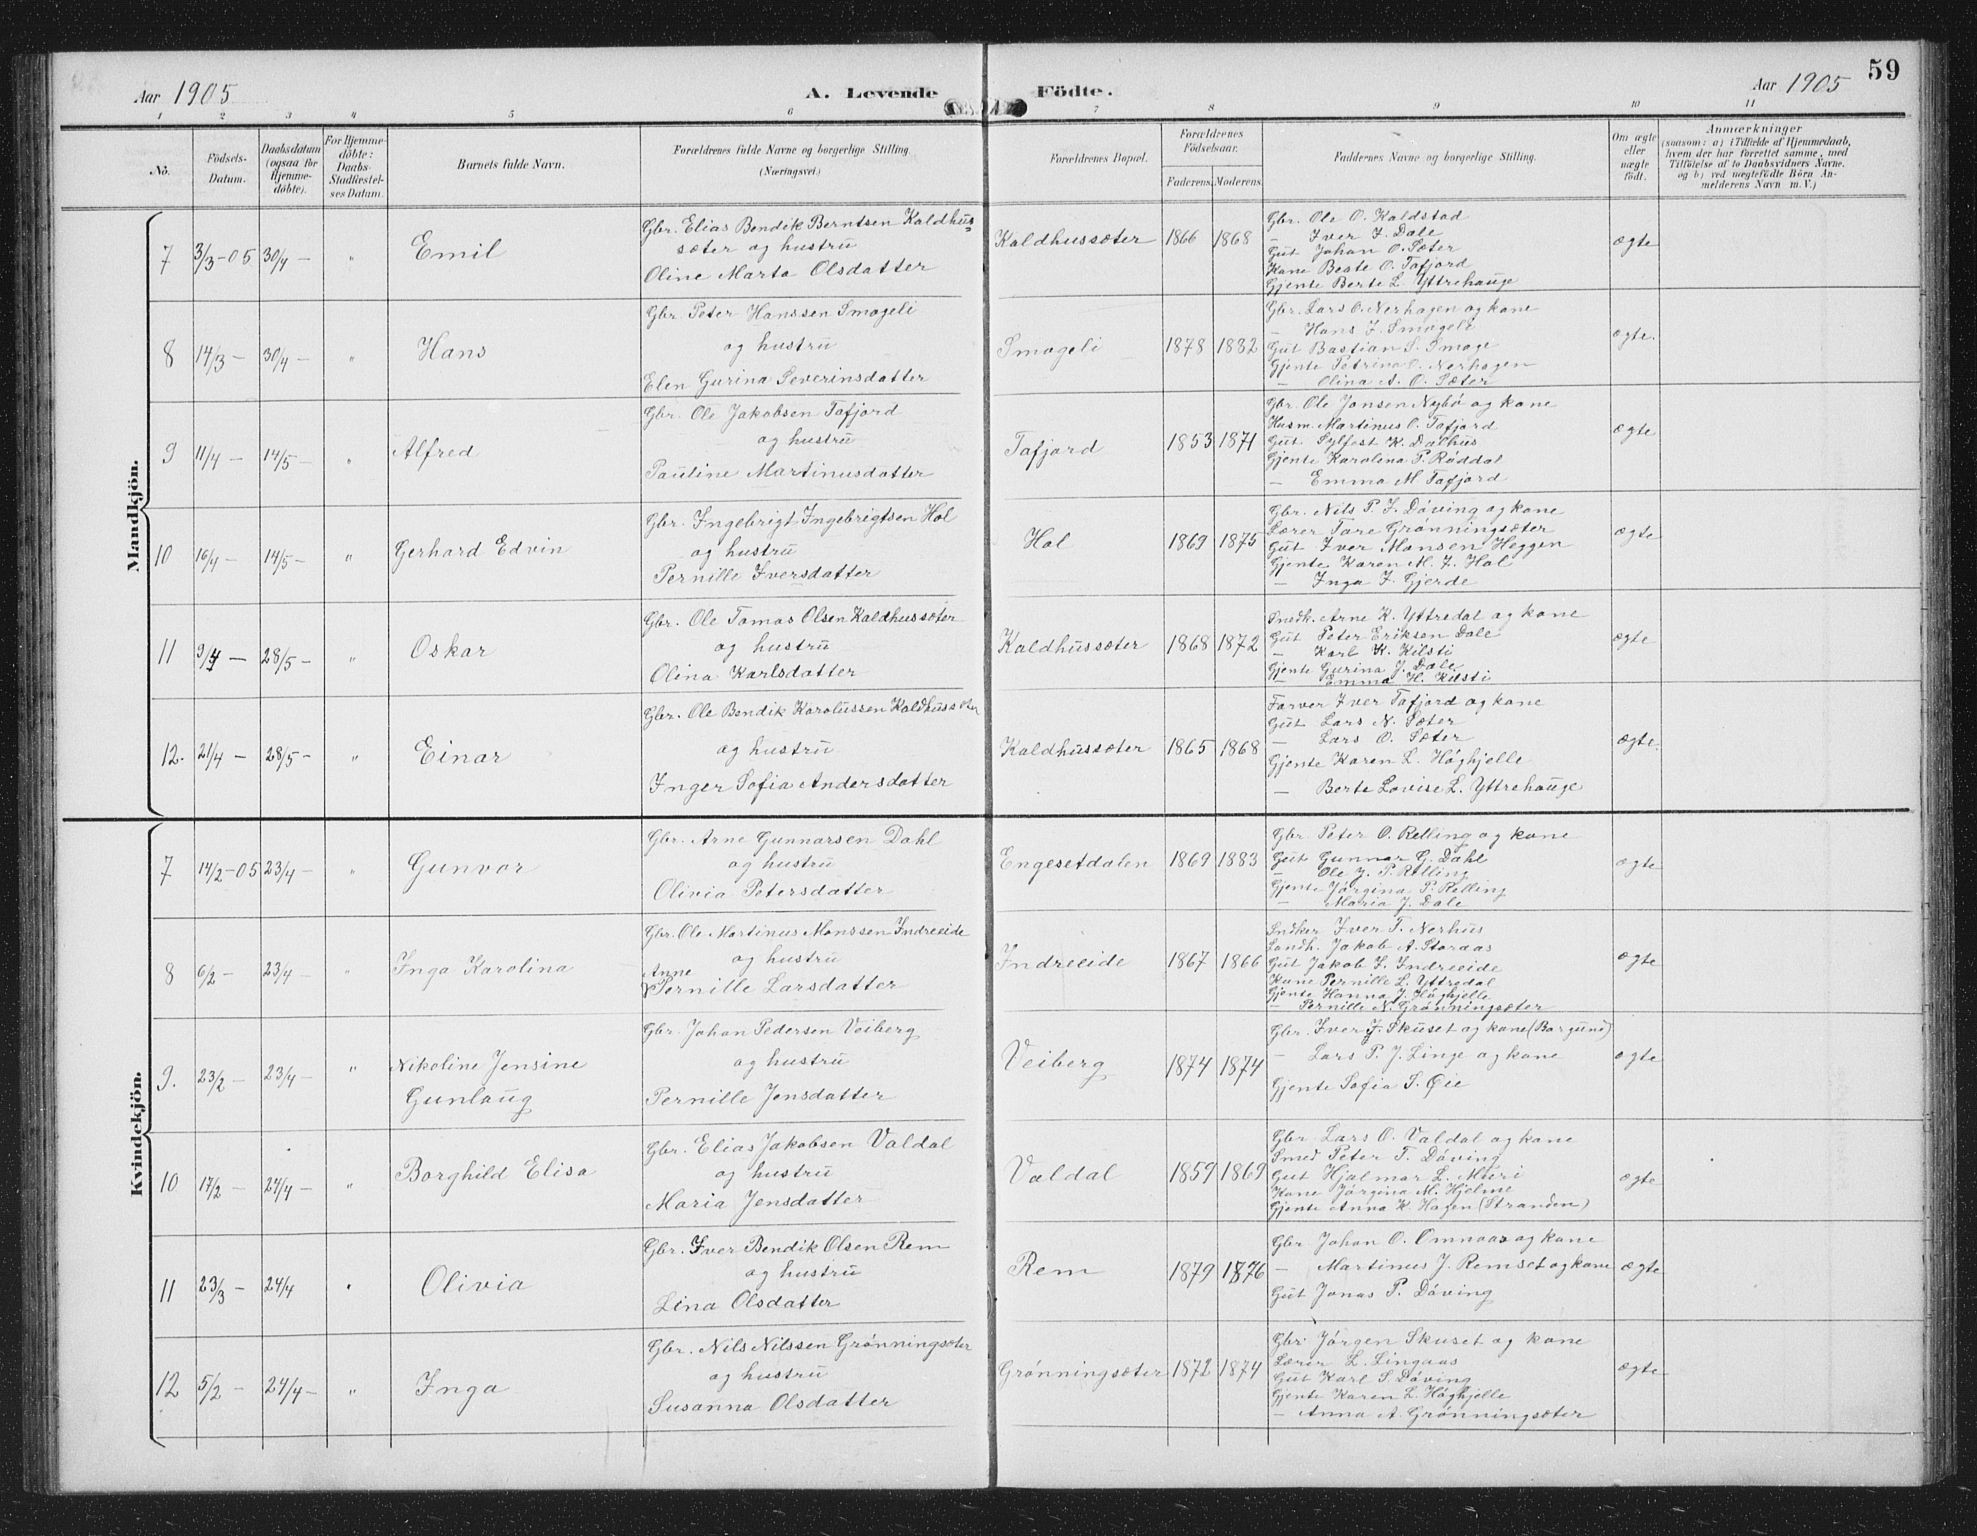 59
Aar 1905
A. Levende
Födte.
Aar 1905
1 2 3 4 5 6 7 8 9 10 11
No.
Födsels-
Datum.
Daabsdatum
(ogsaa for
Hjemme-
döbte).
For Hjemme-
döbte:
Daabs-
Stadfæstel-
ses Datum.
Barnets fulde Navn.
Forældrenes fulde Navne og borgerlige Stilling.
(Næringsvei.)
Forældrenes Bopæl.
Forældrenes
Födselsaar.
Faderens. Moderens.
Faddernes Navne og borgerlige Stilling.
Om ægte
eller
uægte
födt.
Anmærkninger
(saasom: a) i Tilfælde af Hjemmedaab,
hvem der har forrettet samme, med
Tilföielse af to Daabsvidners Navne,
og b) ved uægtefödte Börn An-
melderens Navn m. V.)
Mandkjön.
7 3/3-05 30/4 - " Emil
Gbr. Elias Bendik Berntsen Kaldhus-
sæter og hustru
Oline Marta Olsdatter
Kaldhussæter 1866 1868
Gbr. Ole O. Kaldstad
- Iver J. Dale
Gut Johan O. Sæter
Kone Beate O. Tafjord
Gjente Berte L. Yttrehauge
ægte
8 14/3 - 30/4 - " Hans
Gbr. Peter Hanssen Smogeli
og hustru
Elen Gurina Severinsdatter
Smogeli 1878 1882
Gbr. Lars O. Nerhagen og kone
- Hans J. Smogeli
Gut Bastian S. Smoge
Gjente Petrina O. Nerhagen
- Olina A. O. Sæter
ægte.
9 11/4 - 14/5 - " Alfred
Gbr. Ole Jakobsen Tafjord
og hustru
Pauline Martinusdatter
Tafjord 1853 1871
Gbr. Ole Jonsen Nybö og kone
Husm. Martinus O. Tafjord
Gut Sylfest K. Dalhus
Gjente Karolina P. Röddal
- Emma M. Tafjord
ægte
10 16/4 - 14/5 - " Gerhard Edvin
Gbr. Ingebrigt Ingebrigtsen Hol
og hustru
Pernille Iversdatter
Hol 1869 1875
Gbr. Nils P. J. Döving og kone
Lærer Tore Grönningsæter
Gut Iver Monsen Heggen
Gjente Karen M. I. Hol
- Inga I. Gjerde
ægte
11 9/4 - 28/5 - " Oskar
Gbr. Ole Tomas Olsen Kaldhussæter
og hustru
Olina Karlsdatter
Kaldhussæter 1868 1872
Snedk. Arne K. Yttredal og kone
Gut Peter Eriksen Dale
- Karl K. Kilsti
Gjente Gurina J. Dale
- Emma H. Kilsti
ægte
12. 21/4 - 28/5 - " Einar
Gbr. Ole Bendik Karolussen Kaldhussæter
og hustru
Inger Sofia Andersdatter
Kaldhussæter 1865 1868
Farver Iver Tafjord og kone
Gut Lars N. Sæter
- Lars O. Sæter
Gjente Karen L. Höghjelle
- Berte Lovise L. Yttrehauge
ægte.
Kvindekjön.
7 14/2-05 23/4 - " Gunvor
Gbr. Arne Gunnarsen Dahl
og hustru
Olivia Petersdatter
Engesetdalen 1869 1883
Gbr. Peter O. Relling og kone
Gut Gunnar G. Dahl
- Ole J. P. Relling
Gjente Jörgina P. Relling
- Maria J. Dale
ægte
8 6/2 - 23/4 - " Inga Karolina
Gbr. Ole Martinus Monssen Indreeide
og hustru
Anne
Pernille Larsdatter
Indreeide 1867 1866
Sndker Iver T. Nerhus
Landh. Jakob A. Storaas
Gut Jakob I. Indreeide
Kone Pernille L. Yttredal
Gjente Hanna J. Höghjelle
- Pernille N. Grönningsæter
ægte
9. 23/2 - 23/4 - " Nikoline Jensine
Gunlaug
Gbr. Johan Pedersen Veiberg
og hustru
Pernille Jensdatter
Veiberg 1874 1874
Gbr. Iver J. Skuset og kone (Borgund)
- Lars P. J. Linge og kone
Gjente Sofia S. Øie
ægte
10 17/2 - 24/4 - " Borghild Elisa
Gbr. Elias Jakobsen Valdal
og hustru
Maria Jensdatter
Valdal 1859 1869
Gbr. Lars O. Valdal og kone
Smed Peter T. Döving
Gut Hjalmar L. Muri
Kone Jörgina M. Hjelme
Gjente Anna K. Hagen (Stranden)
ægte
11 23/3 - 24/4 " Olivia
Gbr. Iver Bendik Olsen Rem
og hustru
Lina Olsdatter
Rem 1879 1876
Gbr. Johan O. Omnaas og kone
- Martinus J. Remset og kone
Gut Jonas P. Döving
ægte
12 5/2 - 24/4 - " Inga
Gbr. Nils Nilssen Grönningsæter
og hustru
Susanna Olsdatter
Grönningsæter 1872 1874
Gbr. Jörgen Skuset og kone
Lærer L. Lingaas
Gut Karl S. Döving
Gjente Karen L. Höghjelle
- Anna A. Grönningsæter
ægte